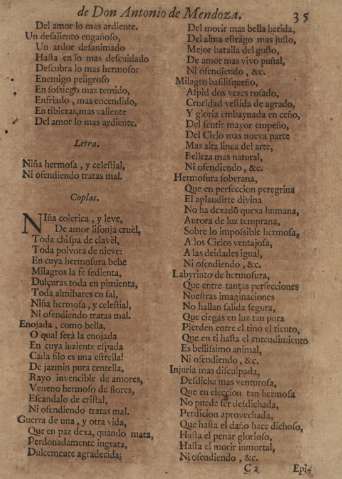 de Don Antonio de Mendoza. 35
Del amor lo mas ardiente.
Un desaliento engañoso,
Un ardor desanimado
Hasta en lo mas descuidado
Descubra lo mas hermoso:
Enemigo peligroso
En sosiego mas temido,
Enfriado, mas encendido,
En tibiezas, mas valiente
Del amor lo mas ardiente.
Letra.
Niña hermosa, y celestial,
Ni ofendiendo tratas mal.
Coplas.
NIña colerica, y leve,
De amor lisonja cruel,
Toda chispa de clavel,
Toda polvora de nieve:
En cuya hermosura bebe
Milagros la fe sedienta,
Dulçuras toda en pimienta,
Toda almibares en sal,
Niña hermosa, y celestial,
Ni ofendiendo tratas mal.
Enojada, como bella,
O qual será la enojada
En cuya luziente espada
Cada filo es una estrella!
De jazmin pura centella,
Rayo invencible de amores,
Veneno hermoso de flores,
Escandalo de cristal,
Ni ofendiendo tratas mal.
Guerra de una, y otra vida,
Que en paz dexa, quando mata,
Perdonadamente ingrata,
Dulcemente agradecida;
Del morir mas bella herida,
Del alma estrago mas justo,
Mejor batalla del gusto,
De amor mas vivo puñal,
Ni ofendiendo, &c.
Milagro basilisqueño,
Aspid dos vezes rosado,
Crueldad vestida de agrado,
Y gloria embaynada en ceño,
Del sentir mayor empeño,
Del Cielo mas nueva parte
Mas alta linea del arte,
Belleza mas natural,
Ni ofendiendo, &c.
Hermosura soberana,
Que en perfeccion peregrina
El aplaudirte divina
No ha dexadō queva humana,
Aurora de luz temprana,
Sobre lo impossible hermosa,
A los Cielos ventajosa,
A las deidades igual,
Ni ofendiendo, &c.
Labyrinto de hermosura,
Que entre tantas perfecciones
Nuestras imaginaciones
No hallan salida segura,
Que ciegas en luz tan pura
Pierden entre el tino el tiento,
Que en ti hasta el entendimiento
Es bellissimo animal,
Ni ofendiendo, &c.
Injuria mas disculpada,
Desdicha mas venturosa,
Que en eleccion tan hermosa
No puede ser desdichada,
Perdicion aprovechada,
Que hasta el daño hace dichoso,
Hasta el penar glorioso,
Hasta el morir inmortal,
Ni ofendiendo, &c.
C 2 Epi-